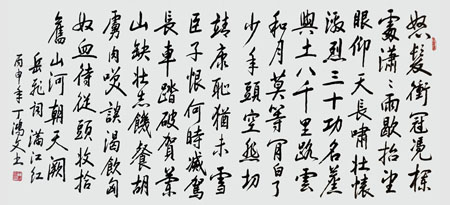 怒髮衝冠憑欄
處瀟瀟雨歇抬望
眼仰天長嘯壯懷
激烈三十功名塵
與土八千里路雲
和月莫等閒白了
少年頭空悲切
靖康恥猶未雪
臣子恨何時滅駕
長車踏破賀蘭
山缺壯志饑餐胡
虜肉笑談渴飲匈
奴血待從頭收拾
舊山河朝天闕
岳飛詞滿江紅
丙申年丁鴻文